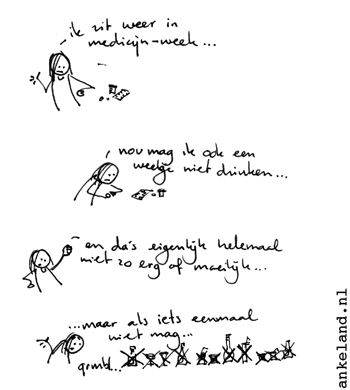 ik zit weer in
medicijn-week...
nou mag ik ook een
weekje niet drinken...
en da's eigenlijk helemaal
niet zo erg of moeilijk...
...maar als iets eenmaal
niet mag...
grmbl...
ankeland.nl